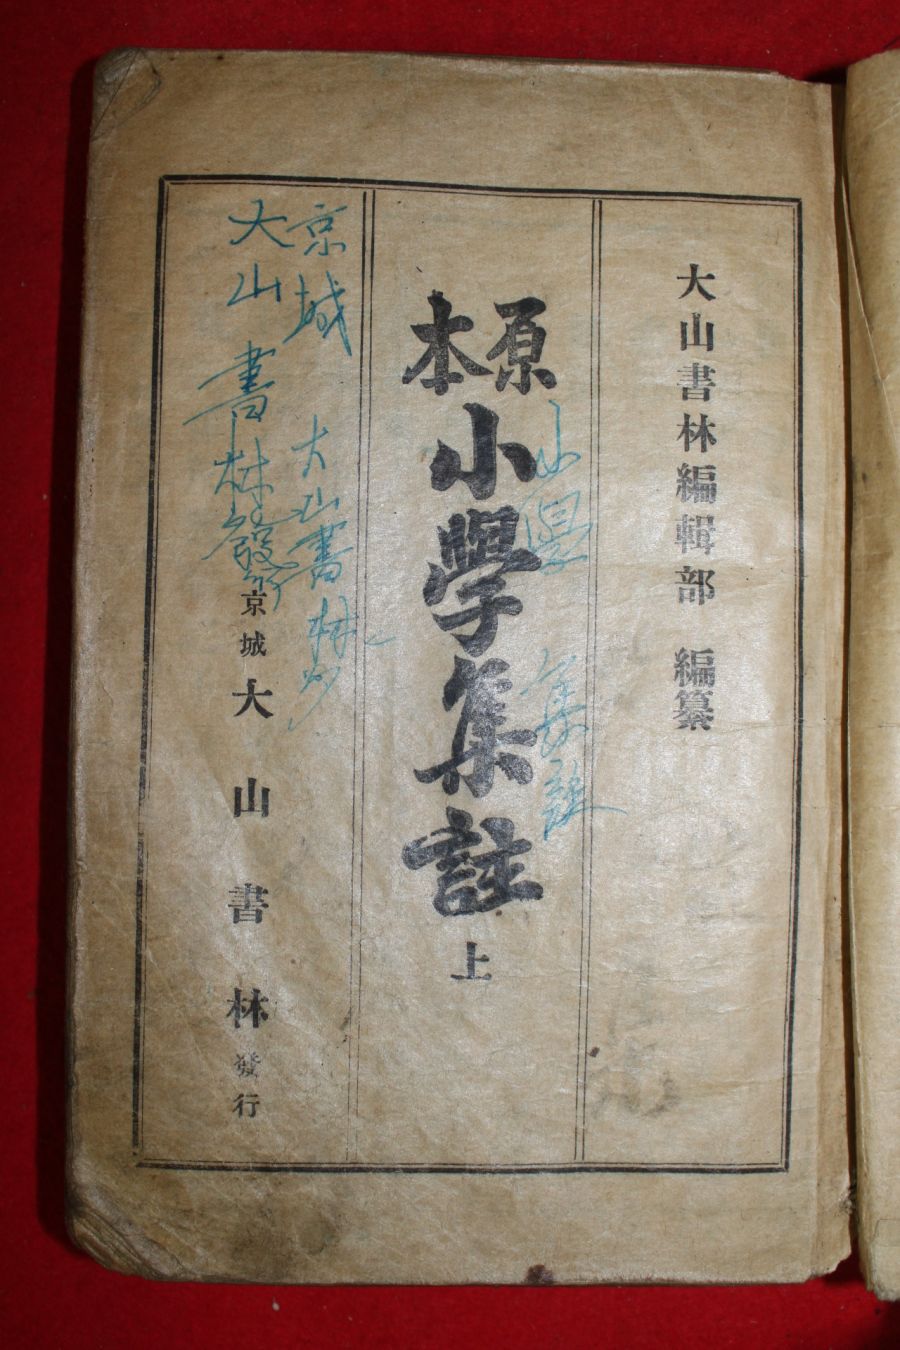 大山書林編輯部 編纂
原本 小學集註 上
小學 集註
京城 大山書林
大山書林發行
京城 大山書林 發行